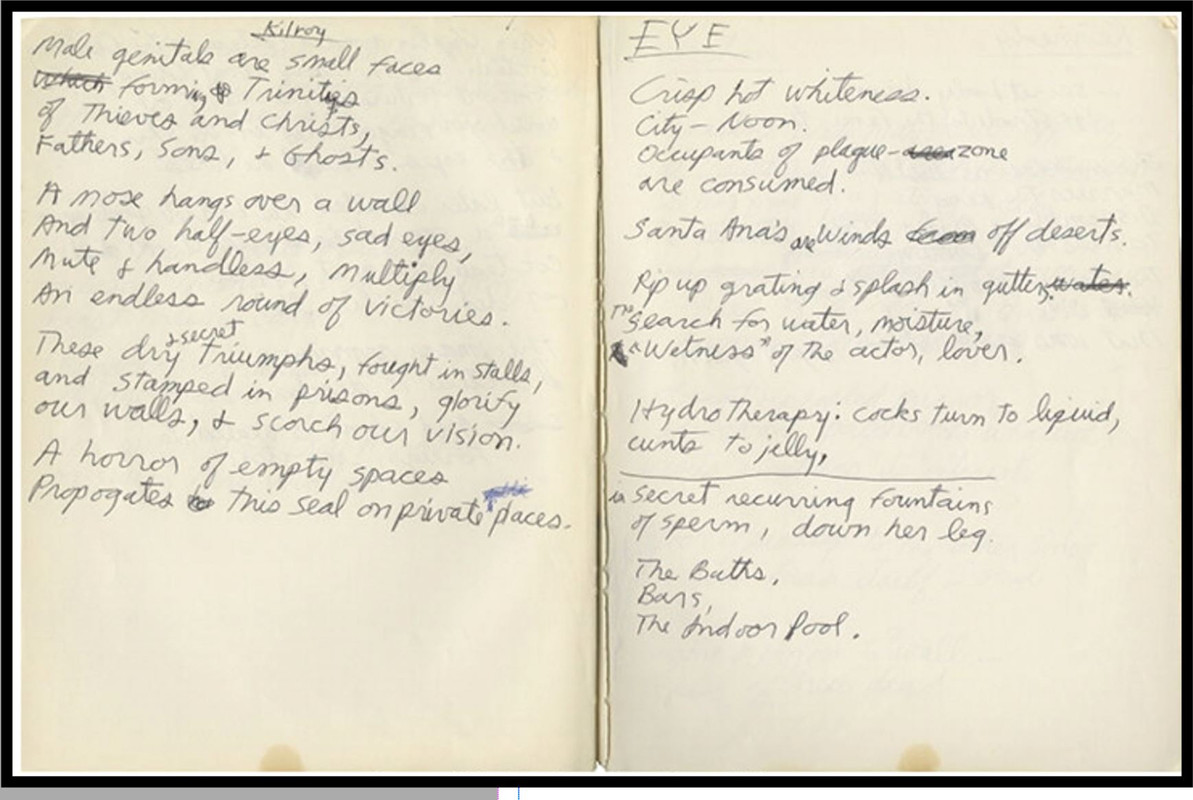 Kilroy
Male genitals are small faces
which forming Trinities
of Thieves and Christs,
Fathers, Sons, + Ghosts.
A nose hangs over a wall
And two half-eyes, sad eyes,
Mute & handless, multiply
An endless round of victories.
These dry + secret Triumphs, fought in stalls,
and stamped in prisons, glorify
our walls, & scorch our vision.
A horror of empty spaces
Propogates this seal on private places.
EYE
Crisp hot whiteness.
City - Noon.
Occupants of plague-area zone
are consumed.
Santa Ana's are winds off deserts.
Rip up grating & splash in gutters. water.
The search for water, moisture,
"Wetness" of the actor, lover.
HydroTherapy: cocks turn to liquid,
cunts to jelly,
in secret recurring fountains
of sperm, down her leg.
The Baths,
Bars,
The Indoor Pool.